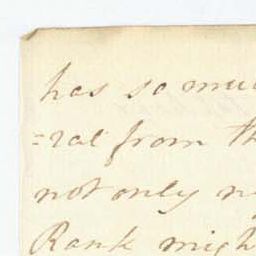 has so muc
=ral from th
not only m
Rank migh